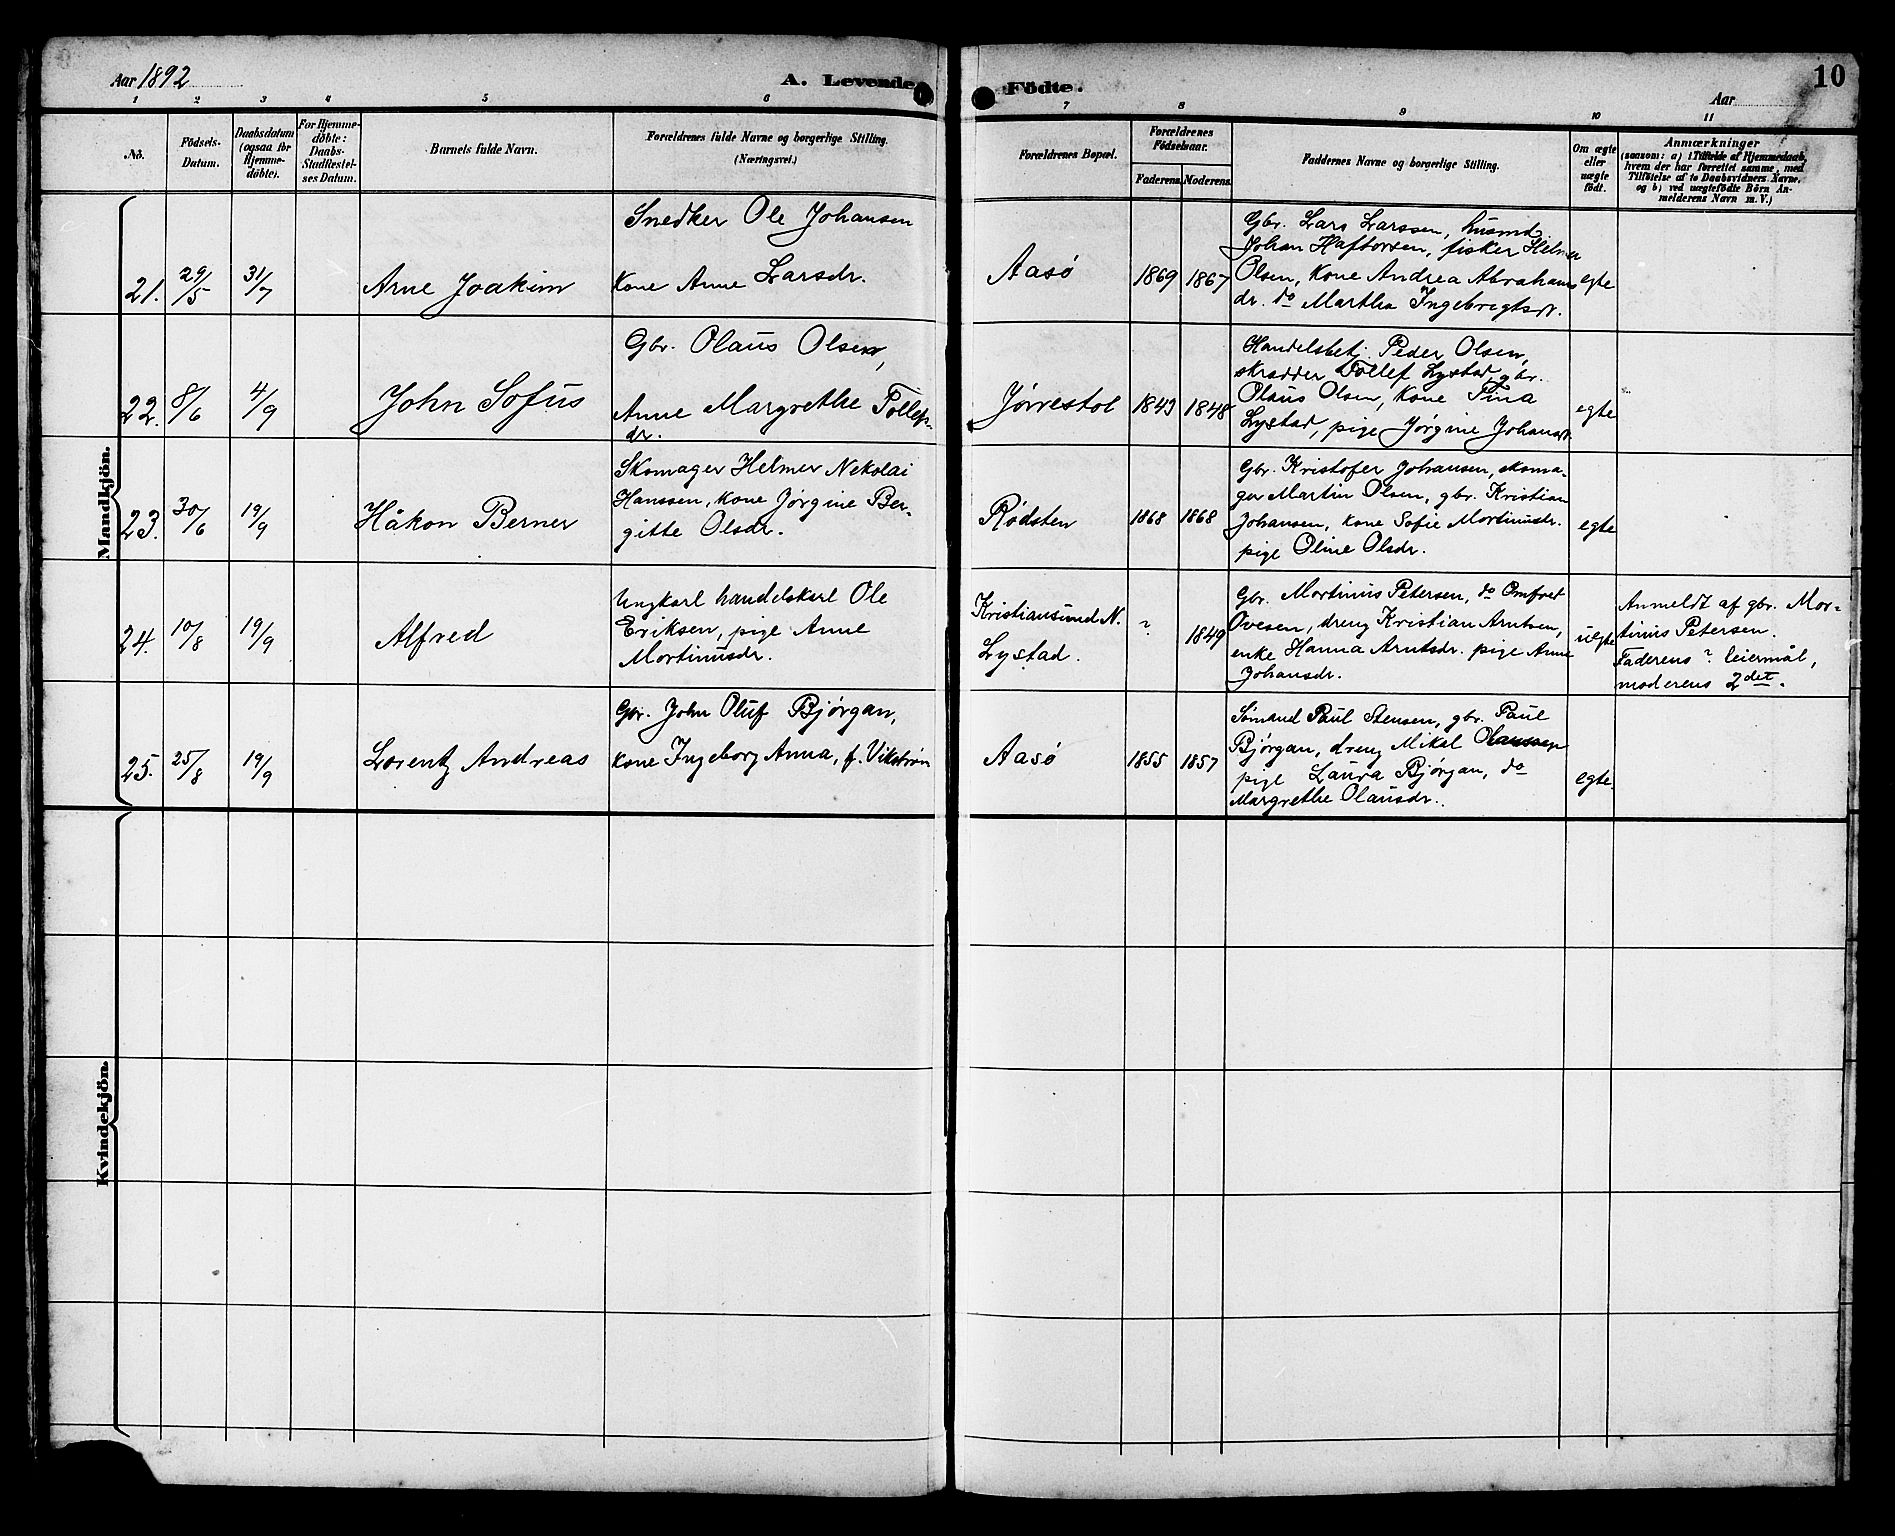 Aar 1892
A. Levende
Födte.
Aar
10
1
2
3
4
5
6
7
8
9
10
11
No.
Födsels-
Datum.
Daabsdatum
(ogsaa for
Hjemme-
døbte).
For Hjemme-
døbte:
Daabs-
Stadfæstel-
ses Datum.
Barnets fulde Navn.
Forældrenes fulde Navne og borgerlige Stilling.
(Næringsvei.)
Forældrenes Bopæl.
Forældrenes
Fødselsaar.
Faderens.
Moderens.
Faddernes Navne og borgerlige Stilling.
Om ægte
eller
uægte
født.
Anmærkninger
(saasom: a) i Tilfælde af Hjemmedaab,
hvem der har forrettet samme, med
Tilføielse af to Daabsvidners Navne,
og b) ved uægtefødte Børn An-
melderens Navn m. V.)
Mandkjön.
21.
29/5
31/7
Arne Joakim
Snedker Ole Johansen
Kone Anne Larsdr.
Aasø
1869
1867
Gbr. Lars Larssen, husmd
Johan Haftorsen, fisker Helmer
Olsen, kone Andrea Abrahams
dr. do Martha Ingebregtsdr.
egte
22.
8/6
4/9
John Sofus
Gbr. Olaus Olsen,
Anne Margrethe Tollefs-
dr.
Jørrestol
1843
1848
Handelsbetj. Peder Olsen,
skrædder Tollef Lystad, gbr.
Olaus Olsen, kone Tina
Lystad, pige Jørgine Johansdr.
egte
23.
30/6
19/9
Håkon Berner
Skomager Helmer Nekolai
Hanssen, kone Jørgine Ber-
gitte Olsdr.
Rødsten
1868
1868
Gbr. Kristofer Johansen, skoma-
ger Martin Olsen, gbr. Kristian
Johansen, kone Sofie Mortinusdr.
pige Oline Olsdr.
egte
24.
10/8
19/9
Alfred
Ungkarl handelskarl Ole
Eriksen, pige Anne
Mortinusdr.
Kristiansund N.
Lystad.
?
1849
Gbr. Mortinus Petersen, do Omfret
Ovesen, dreng Kristian Arntsen,
enke Hanna Arntsdr. pige Anne
Johansdr.
uegte
Anmeldt af gbr. Mor-
tinus Petersen.
Faderens ? leiermål,
moderens 2det.
25.
25/8
19/9
Lorentz Andreas
Gbr. John Oluf Bjørgan,
kone Ingeborg Anna, f. Vikstrøm
Aasø
1855
1857
Sømand Paul Stensen, gbr. Paul
Bjørgan, dreng Mikal Olaussen
pige Laura Bjørgan, do
Margrethe Olausdr.
egte.
Kvindekjön.